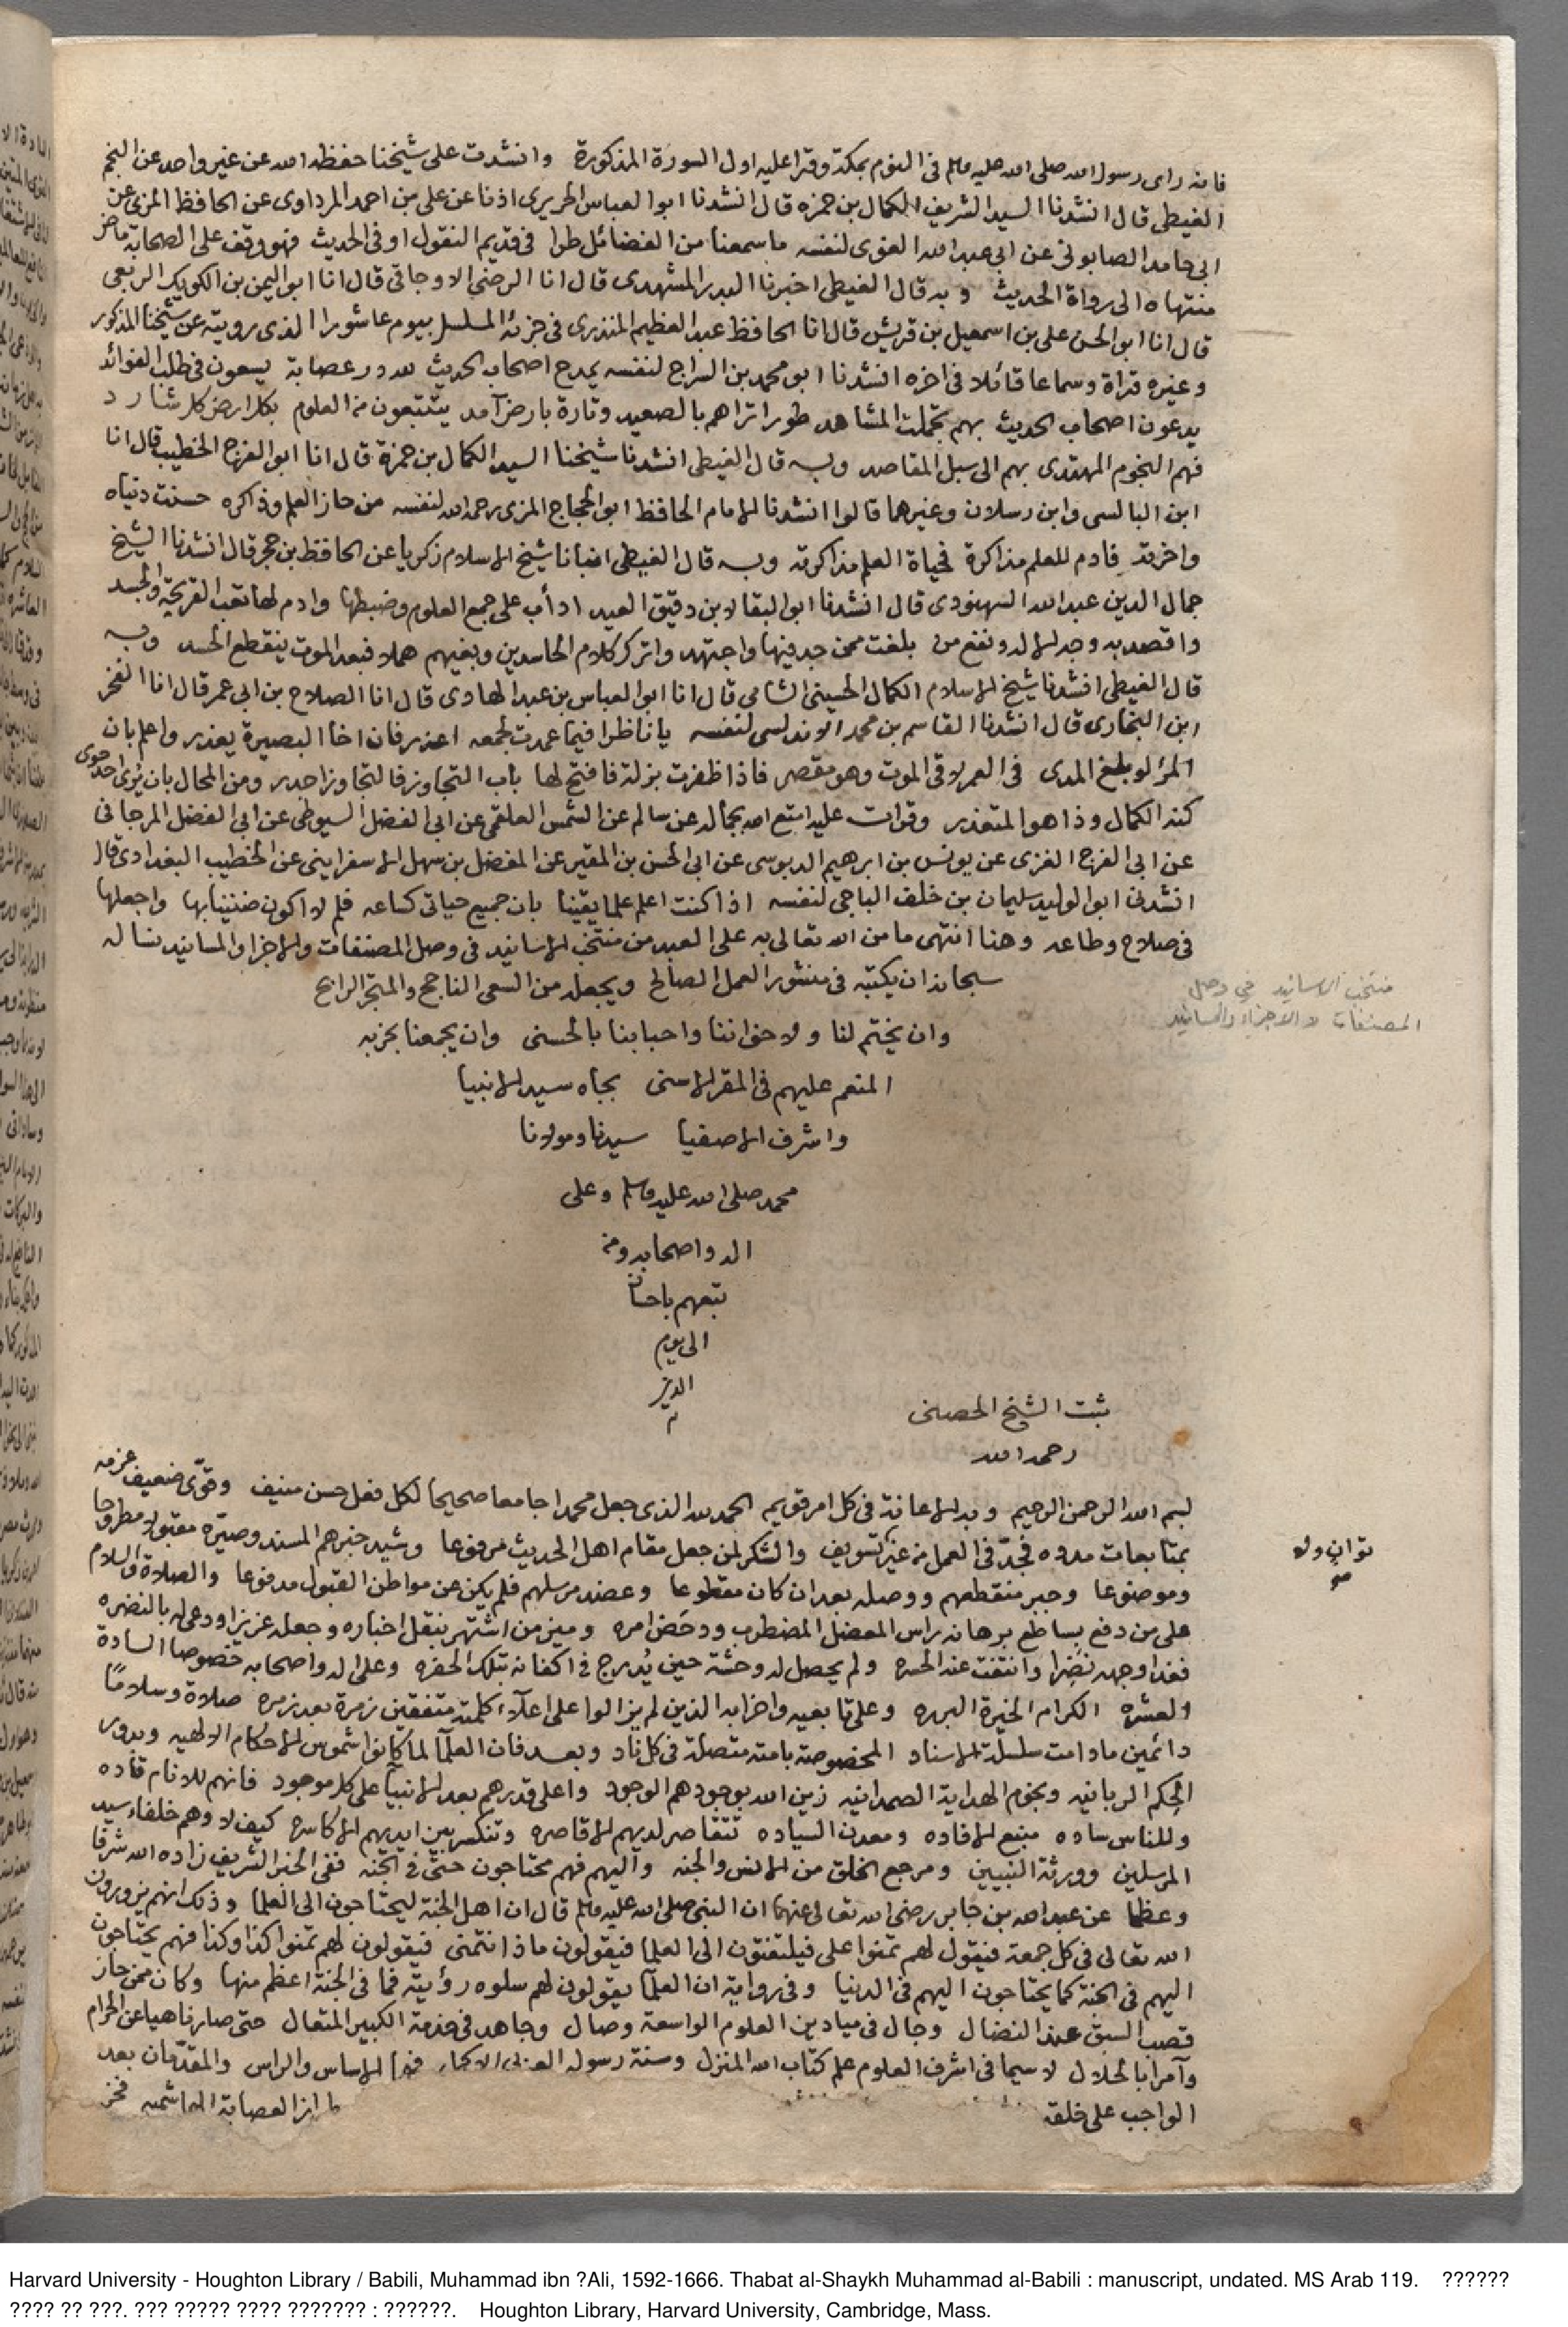 فانه راى رسول الله صلى الله عليه وسلم في النوم بمكة وقرا عليه اول السورة المذكورة وانشدت على شيخنا حفظه الله عن غير واحد عن النجم
الغيطي قال انشدنا السيد الشريف الكمال بن حمزه قال انشدنا ابو العباس الحريري اذنا عن علي بن احمد المرداوى عن الحافظ المزي عن
ابي حامد الصابوني عن ابي عبد الله الغوى لنفسه ما سمعنا من الفضائل طرا في قديم النقول او في الحديث فهو وقف على الصحابة ماض
منتهاه الى رواة الحديث وبه قال الغيطي اخبرنا البدر المشهدى قال انا الرضي الاوجاقي قال انا ابو اليمن بن الكويك الربعي
قال انا ابو الحسن علي بن اسمعيل بن قريش قال انا الحافظ عبد العظيم المنذرى في جزئه المسلسل بيوم عاشورا الذى رويته عن شيخنا المذكور
وغيره قراة وسماعا قائلا في اخره انشدنا ابو محمد بن السراج لنفسه يمدح اصحاب الحديث لله در عصابة يسعون في طلب الفوائد
يدعون اصحاب الحديث بهم تجملت المشاهد طورا تراهم بالصعيد وتارة بارض آمد يتتبعون من العلوم بكل ارض كل شارد
فهم النجوم المهتدى بهم الى سبل المقاصد وبه قال الغيطي انشدنا شيخنا السيد الكمال بن حمزة قال انا ابو الفرج الخطيب قال انا
ابن البالسى وابن رسلان وغيرهما قالوا انشدنا الامام الحافظ ابو الحجاج المزى رحمه الله لنفسه من حاز العلم وذاكره حسنت دنياه
واخرته فادم للعلم مذاكرة فحياة العلم مذاكرته وبه قال الغيطي انبأنا شيخ الاسلام زكريا عن الحافظ بن حجر قال انشدنا الشيخ
جمال الدين عبد الله السهنودى قال انشدنا ابو البقا لابن دقيق العيد ادأب على جمع العلوم وضبطها وادم لها تعب القريحة والجسد
واقصد به وجه الاله ونفع من بلغت ممن جد فيها واجتهد واترك كلام الحاسدين وبغيهم هملا فبعد الموت ينقطع الحسد وبه
قال الغيطي انشدنا شيخ الاسلام الكمال الحسيني الشامي قال انا ابو العباس بن عبد الهادى قال انا الصلاح بن ابي عمر قال انا الفخر
ابن البخارى قال انشدنا القاسم بن محمد الاندلسى لنفسه يا ناظرا فيما عمدت لجمعه اعذر فان اخا البصيرة يعذر واعلم بان
المرء لو بلغ المدى في العمر لاقى الموت وهو مقصر فاذا ظفرت بزلة فافتح لها باب التجاوز فالتجاوز اجدر ومن المحال بان يُرى احد حوى
كنه الكمال وذا هو المتعذر وقرات عليه امتع الله بجماله عن سالم عن الشمس العلقمي عن ابي الفضل السيوطي عن ابي الفضل المرجاني
عن ابي الفرج الغزى عن يونس بن ابرهيم الدبوسى عن ابي الحسن بن المقير عن المفضل بن سهل الاسفرايني عن الخطيب البغدادى قال
انشدني ابو الوليد سليمان بن خلف الباجي لنفسه اذا كنت اعلم علما يقينا بان جميع حياتي كساعه فلم لا اكون ضنينا بها واجعلها
في صلاح وطاعه وهنا انتهى ما من الله تعالى به على العبد من منتخب الاسانيد في وصل المصنفات والاجزا والمسانيد نساله
سبحانه ان يكتبه في منشور العمل الصالح ويجعله من السعى الناجح والمتجر الرابح
منتخب الاسانيد في وصل
المصنفات والاجزاء والمسانيد
وان يختم لنا ولاخواننا واحبابنا بالحسنى وان يجمعنا بحزبه
المنعم عليهم في المقر الاسنى بجاه سيد الانبيا
واشرف الاصفيا سيدنا ومولانا
محمد صلى الله عليه وسلم وعلى
اله واصحابه ومن
تبعهم باحسان
الى يوم
الدين
م
ثبت الشيخ الحصيني
رحمه الله
بسم الله الرحمن الرحيم وبه الاعانة في كل امر قويم الحمد لله الذى جعل محمدا جامعا صحيحا لكل فعل حسن منيف وقوّى ضعيف عزمه
بمتابعات مدده فجدّ في العمل من غير تسويف والشكر لمن جعل مقام اهل الحديث مرفوعا وشيد خبرهم المسند وصيّره مقبولا مطروحا
وموضوعا وجبر منقطعهم ووصله بعد ان كان مقطوعا وعضد مرسلهم فلم يكن عن مواطن القبول مدفوعا والصلاة والسلام
على من دفع بساطع برهانه راس المعضل المضطرب ودحض امره وميز من اشتهر بنقل اخباره وجعله عزيزا ودعى له بالنضره
فغدا وجهه نضِرا وانتفت عنه الحسره ولم يحصل له وحشة حين يُدرج في اكفانه بتلك الحفره وعلى اله واصحابه خصوصا السادة
والعشره الكرام الخيرة البرره وعلى تابعيه واحزابه الذين لم يزالوا على اعلاء كلمته متفقين زمرة بعد زمره صلاة وسلامًا
دائمين ما دامت سلسلة الاسناد المخصوصة بامته متصلة في كل ناد وبعد فان العلمآ لما كانوا شموس الاحكام الالهيه وبدور
الحِكم الربانيه ونجوم الهداية الصمدانيه زين الله بوجودهم الوجود واعلى قدرهم بعد الانبيآ على كل موجود فانهم للانام قاده
وللناس ساده منبع الافاده ومعدن السياده تتقاصر لديهم الاقاصره وتنكسر بين ايديهم الاكاسره كيف لا وهم خلفاء سيد
المرسلين وورثة النبيين ومرجع الخلق من الانس والجنه واليهم فهم محتاجون حتى في الجنه ففي الخبر الشريف زاده الله شرفا
وعظما عن عبد الله بن جابر رضى الله تعالى عنهما ان النبي صلى الله عليه وسلم قال ان اهل الجنة ليحتاجون الى العلما وذلك انهم يزورون
الله تعالى في كل جمعة فيقول لهم تمنوا على فيلتفتون الى العلما فيقولون ماذا نتمنى فيقولون لهم تمنوا كذا وكذا فهم يحتاجون
اليهم في الجنة كما يحتاجون اليهم في الدنيا وفي رواية ان العلمآ يقولون لهم سلوه رؤيته فما في الجنة اعظم منها وكان ممن حاز
قصب السبق عند النضال وجال في ميادين العلوم الواسعة وصال وجاهد في خدمة الكبير المتعال حتى صار ناهيا عن الحرام
وآمرا بالحلال لا سيما في اشرف العلوم علم كتاب الله المنزل وسنة رسوله الاساس والراس والمقدّمان بعد
الواجب على خلقه العصابة الهاشميه فخر